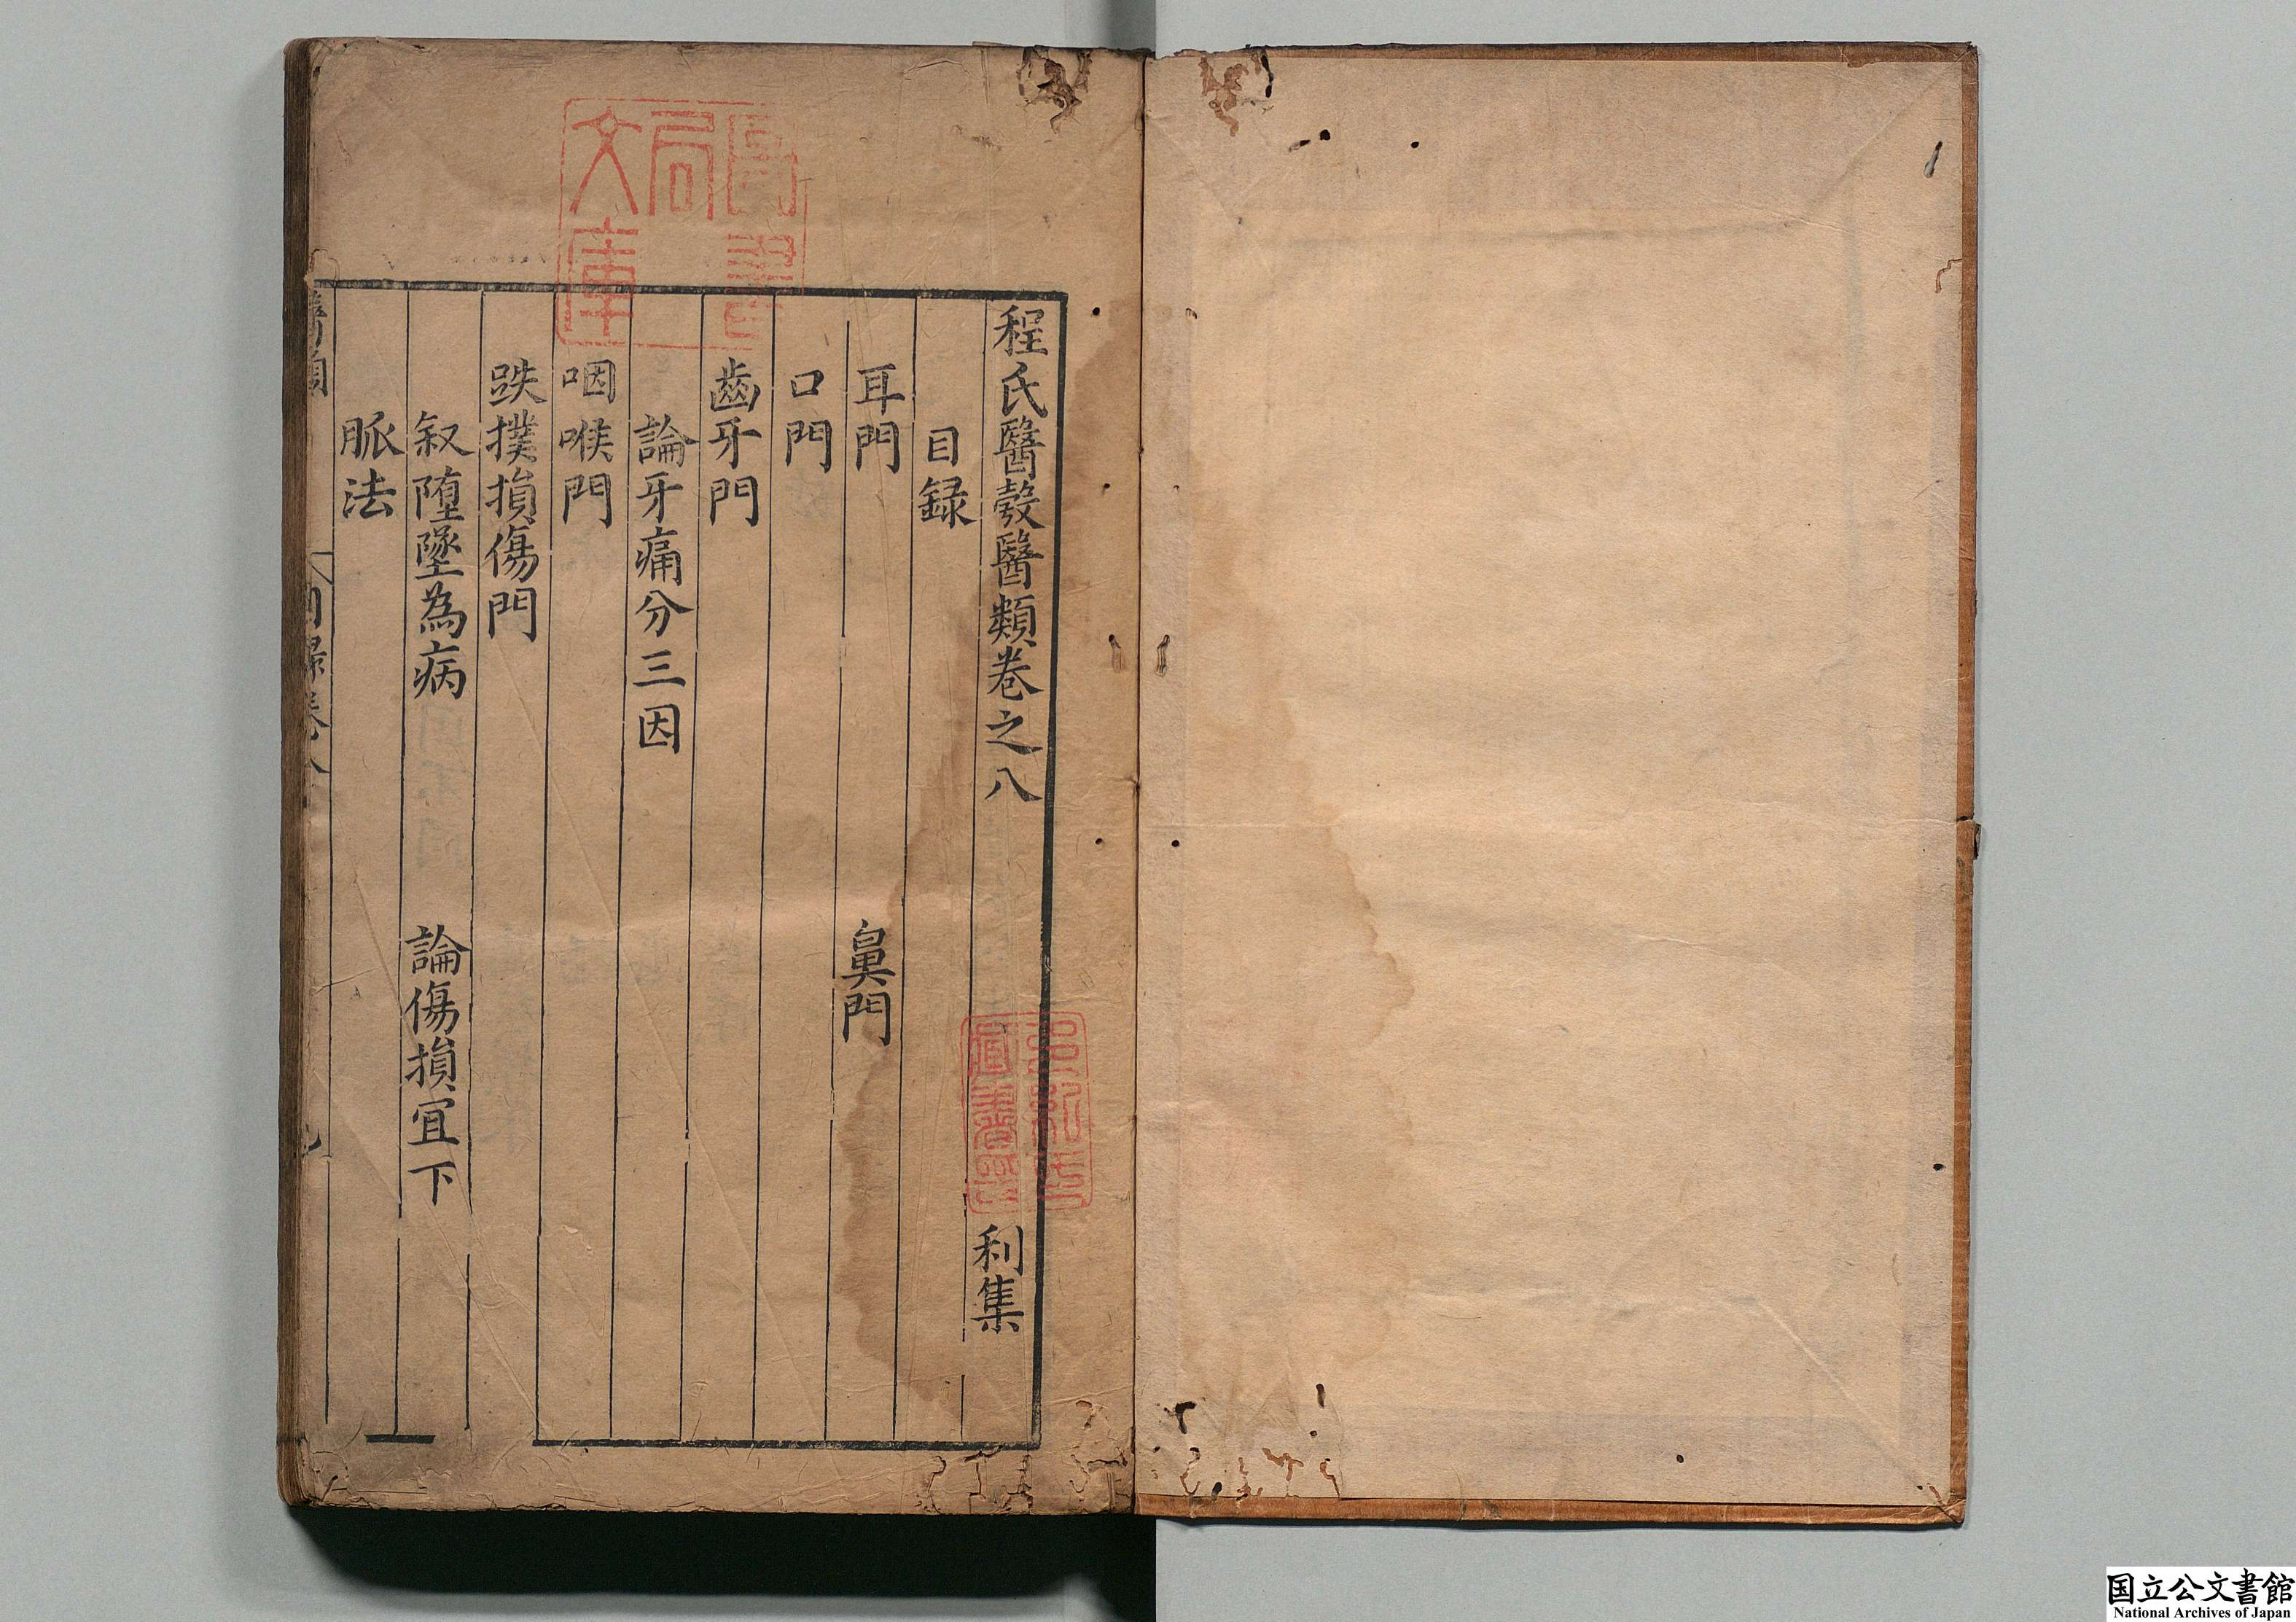 程氏醫彀醫類卷之八 利集
目録
耳門 鼻門
口門
齒牙門
論牙痛分三因
咽喉門
跌撲損傷門
叙墮墜為病 論傷損宜下
脈法
圖書
局
文庫
国立公文書館
National Archives of Japan